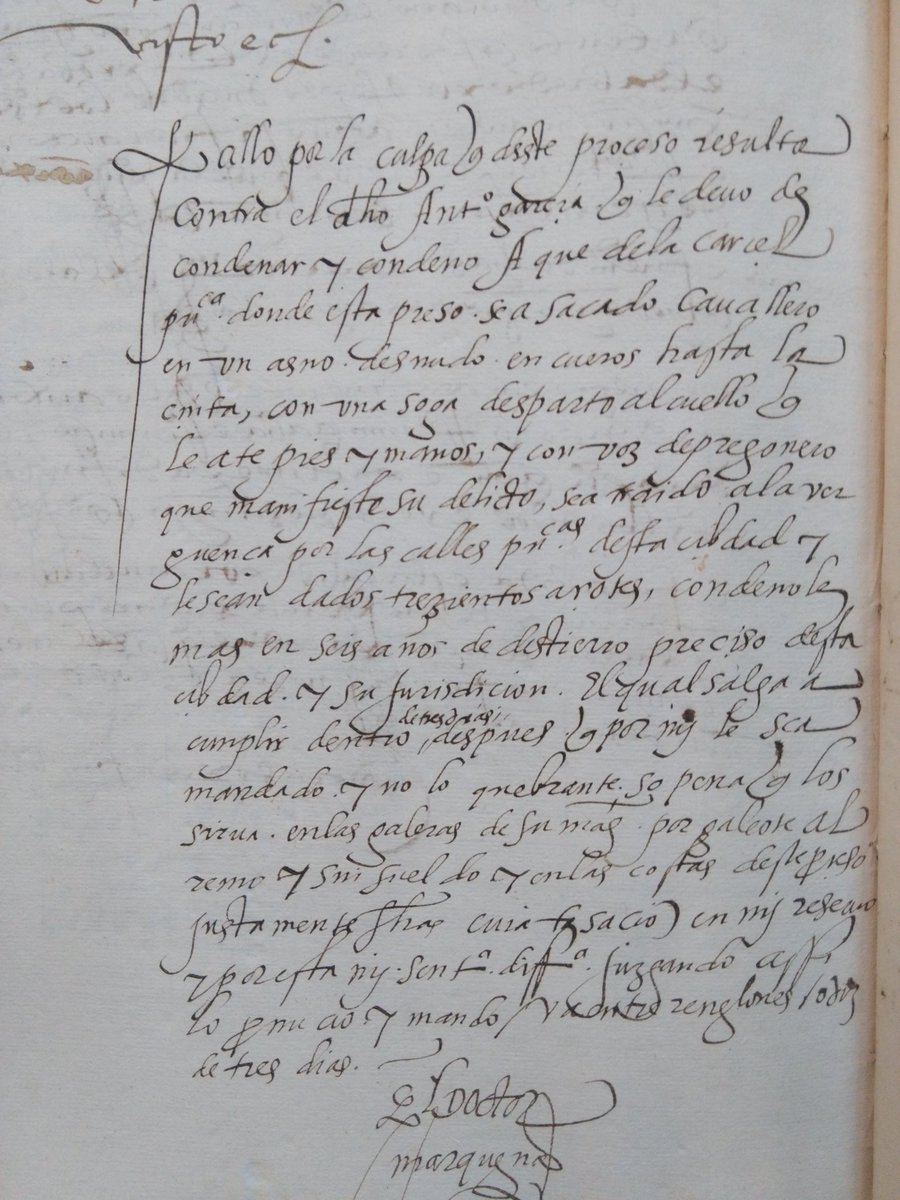 Visto ecª.
Fallo por la culpa q̃ dste proceso resulta
Contra el dho Antº garcia q̃ le devo de
condenar y condeno A que dela carcel
puca. donde esta preso. sea sacado Cavallero
en un asno. desnudo. en cueros hasta la
cinta, con una soga desparto al cuello q̃
le ate pies y manos, y con voz de pregonero
que manifieste su delicto, sea traido ala ver
guença por las calles pucas. desta cibdad y
le sean dados trezientos açotes, condenole
mas en seis años de destierro preciso desta
cibdad. y su Jurisdicion. El qual salga a
de tres dias
cumplir dentro, despues q̃ por mj le sea
mandado. y no lo quebrante. so pena q̃ los
sirva. en las galeras de su mag. por galeote al
remo y sin sueldo y en las costas deste proceso
Justamente hechas cuia tasacio) en mj reservo
y por esta mj. sentª. diffª. Juzgando assi
lo pronucio y mando / va entre renglones / o diz
de tres dias.
El Doctor
marquena